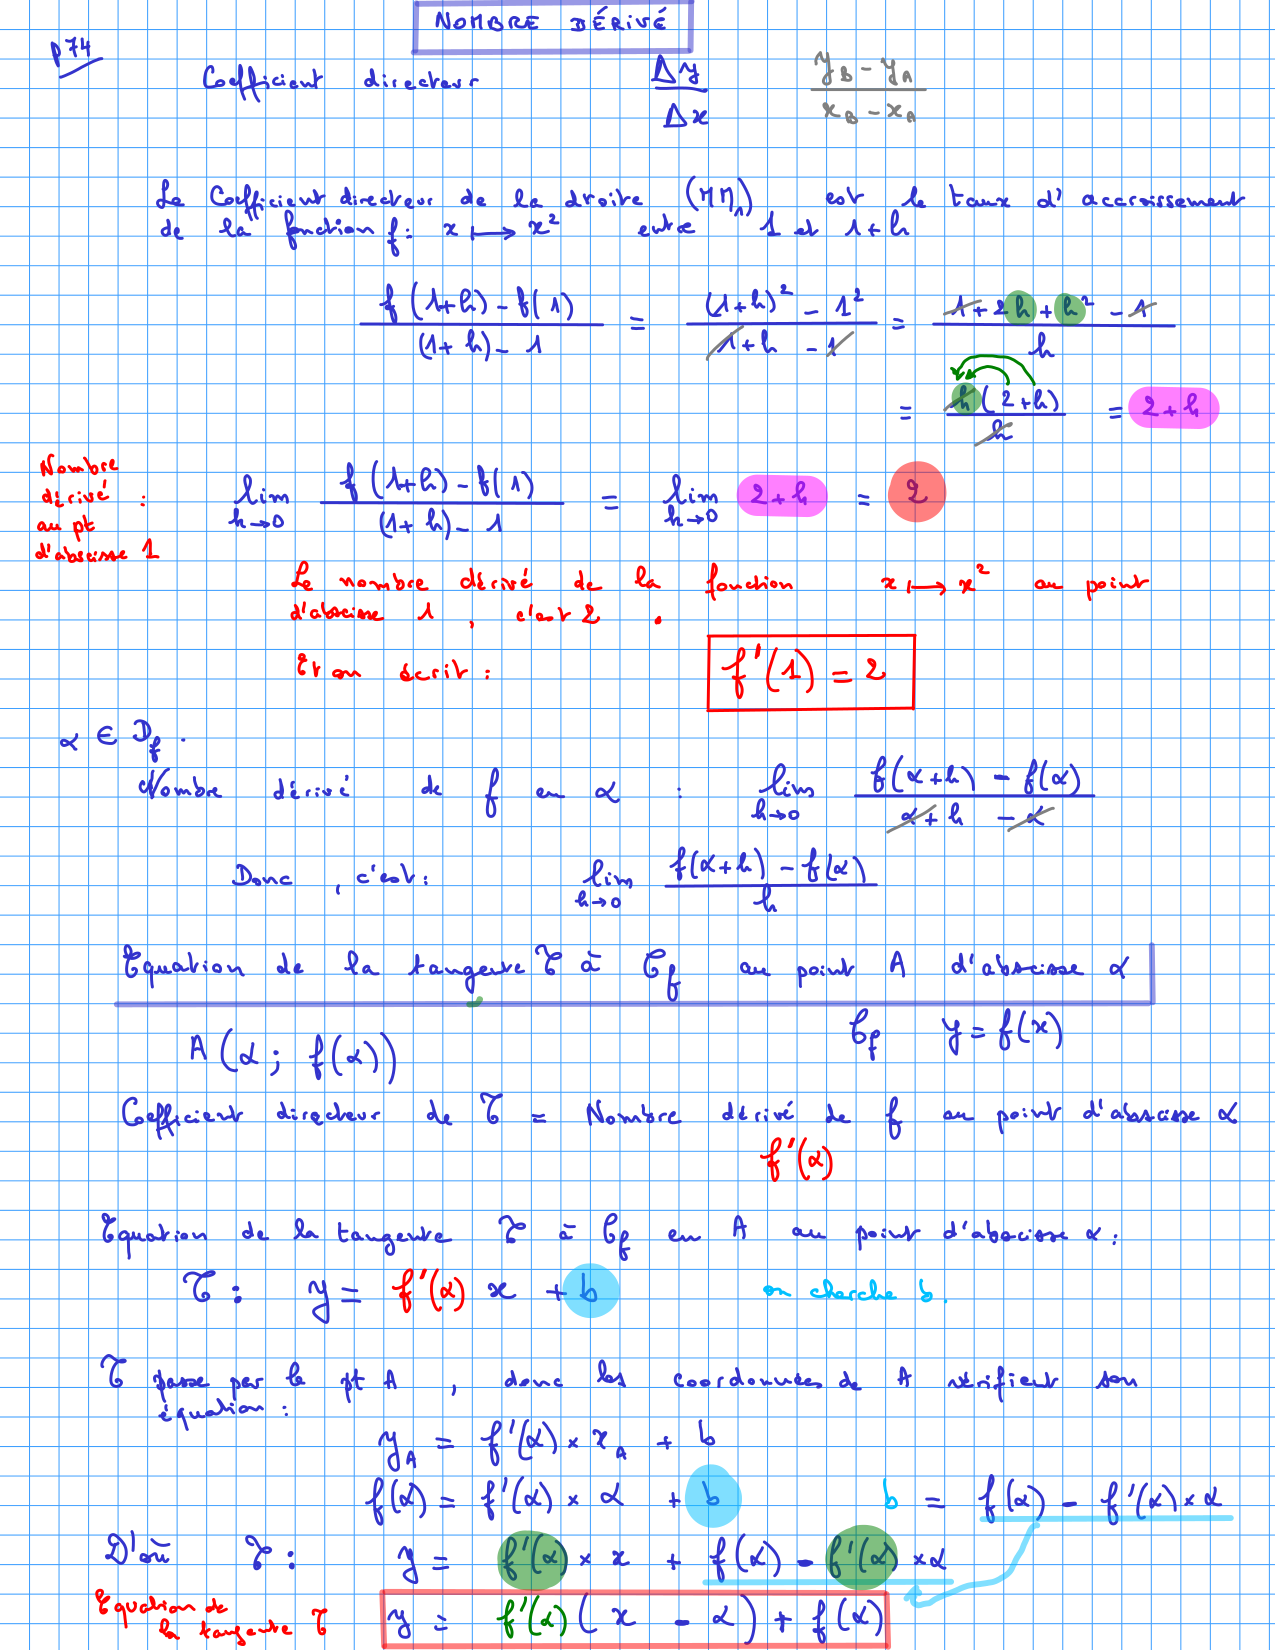 NOMBRE DÉRIVÉ
p 74
Coefficient directeur Δy/Δx (y_B - y_A)/(x_B - x_A)
Le Coefficient directeur de la droite (MM₁) est le taux d'accroissement
de la fonction f: x ⟼ x² entre 1 et 1+h
(f(1+h) - f(1))/((1+h) - 1) = ((1+h)² - 1²)/(1+h - 1) = (1+2h+h² - 1)/h
= h(2+h)/h = 2+h
Nombre
dérivé :
au pt
d'abscisse 1
lim h→0 (f(1+h) - f(1))/((1+h) - 1) = lim h→0 2+h = 2
Le nombre dérivé de la fonction x ⟼ x² au point
d'abscisse 1, c'est 2.
Et on écrit : f'(1) = 2
α ∈ D_f.
Nombre dérivé de f en α : lim h→0 (f(α+h) - f(α))/(α+h - α)
Donc, c'est: lim h→0 (f(α+h) - f(α))/h
Equation de la tangente T à C_f au point A d'abscisse α
A(α; f(α)) C_f y = f(x)
Coefficient directeur de T = Nombre dérivé de f au point d'abscisse α
f'(α)
Equation de la tangente T à C_f en A au point d'abscisse α:
T: y = f'(α) x + b on cherche b.
T passe par le pt A, donc les coordonnées de A vérifient son
équation :
y_A = f'(α) × x_A + b
f(α) = f'(α) × α + b b = f(α) - f'(α) × α
D'où T: y = f'(α) × x + f(α) - f'(α) × α
Equation de
la tangente T y = f'(α)(x - α) + f(α)